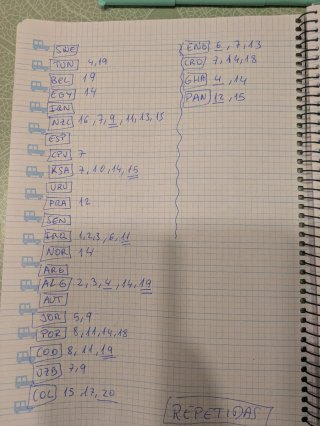 SWE
TUN 4,19
BEL 19
EGY 14
IRN
NZL 16, 7, 9, 11, 13, 15
ESP
CPV 7
KSA 7, 10, 14, 15
URU
FRA 12
SEN
IRQ 1, 2, 3, 6, 11
NOR 14
ARG
ALG 2, 3, 4, 14, 19
AUT
JOR 5, 9
POR 8, 11, 14, 18
COD 8, 11, 19
UZB 7, 9
COL 15 17, 20
ENG 6, 7, 13
CRO 7, 14, 18
GHA 4, 14
PAN 12, 15
REPETIDAS